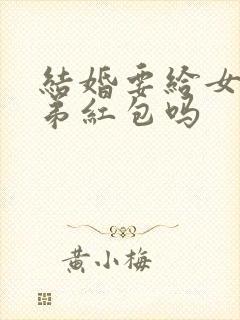 結婚要給女
弟紅包吗
黄小梅